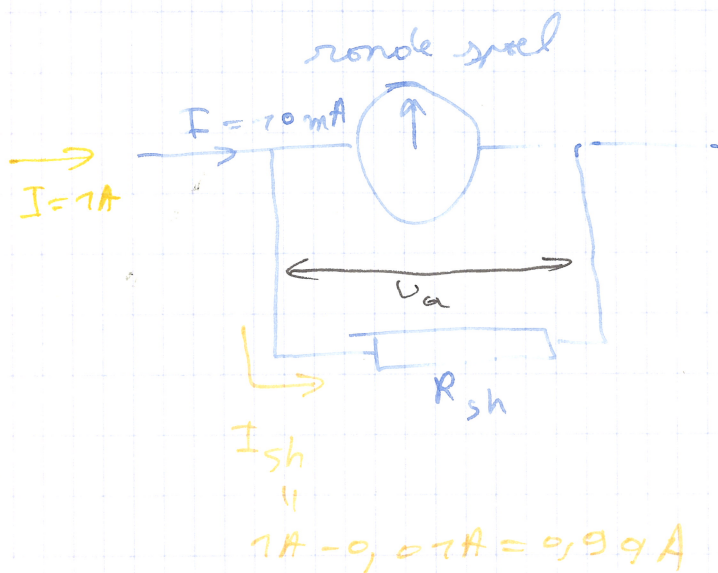 ronde spoel
I = 10 mA
I = 1A
Ua
Rsh
Ish
=
1A - 0,01A = 0,99A